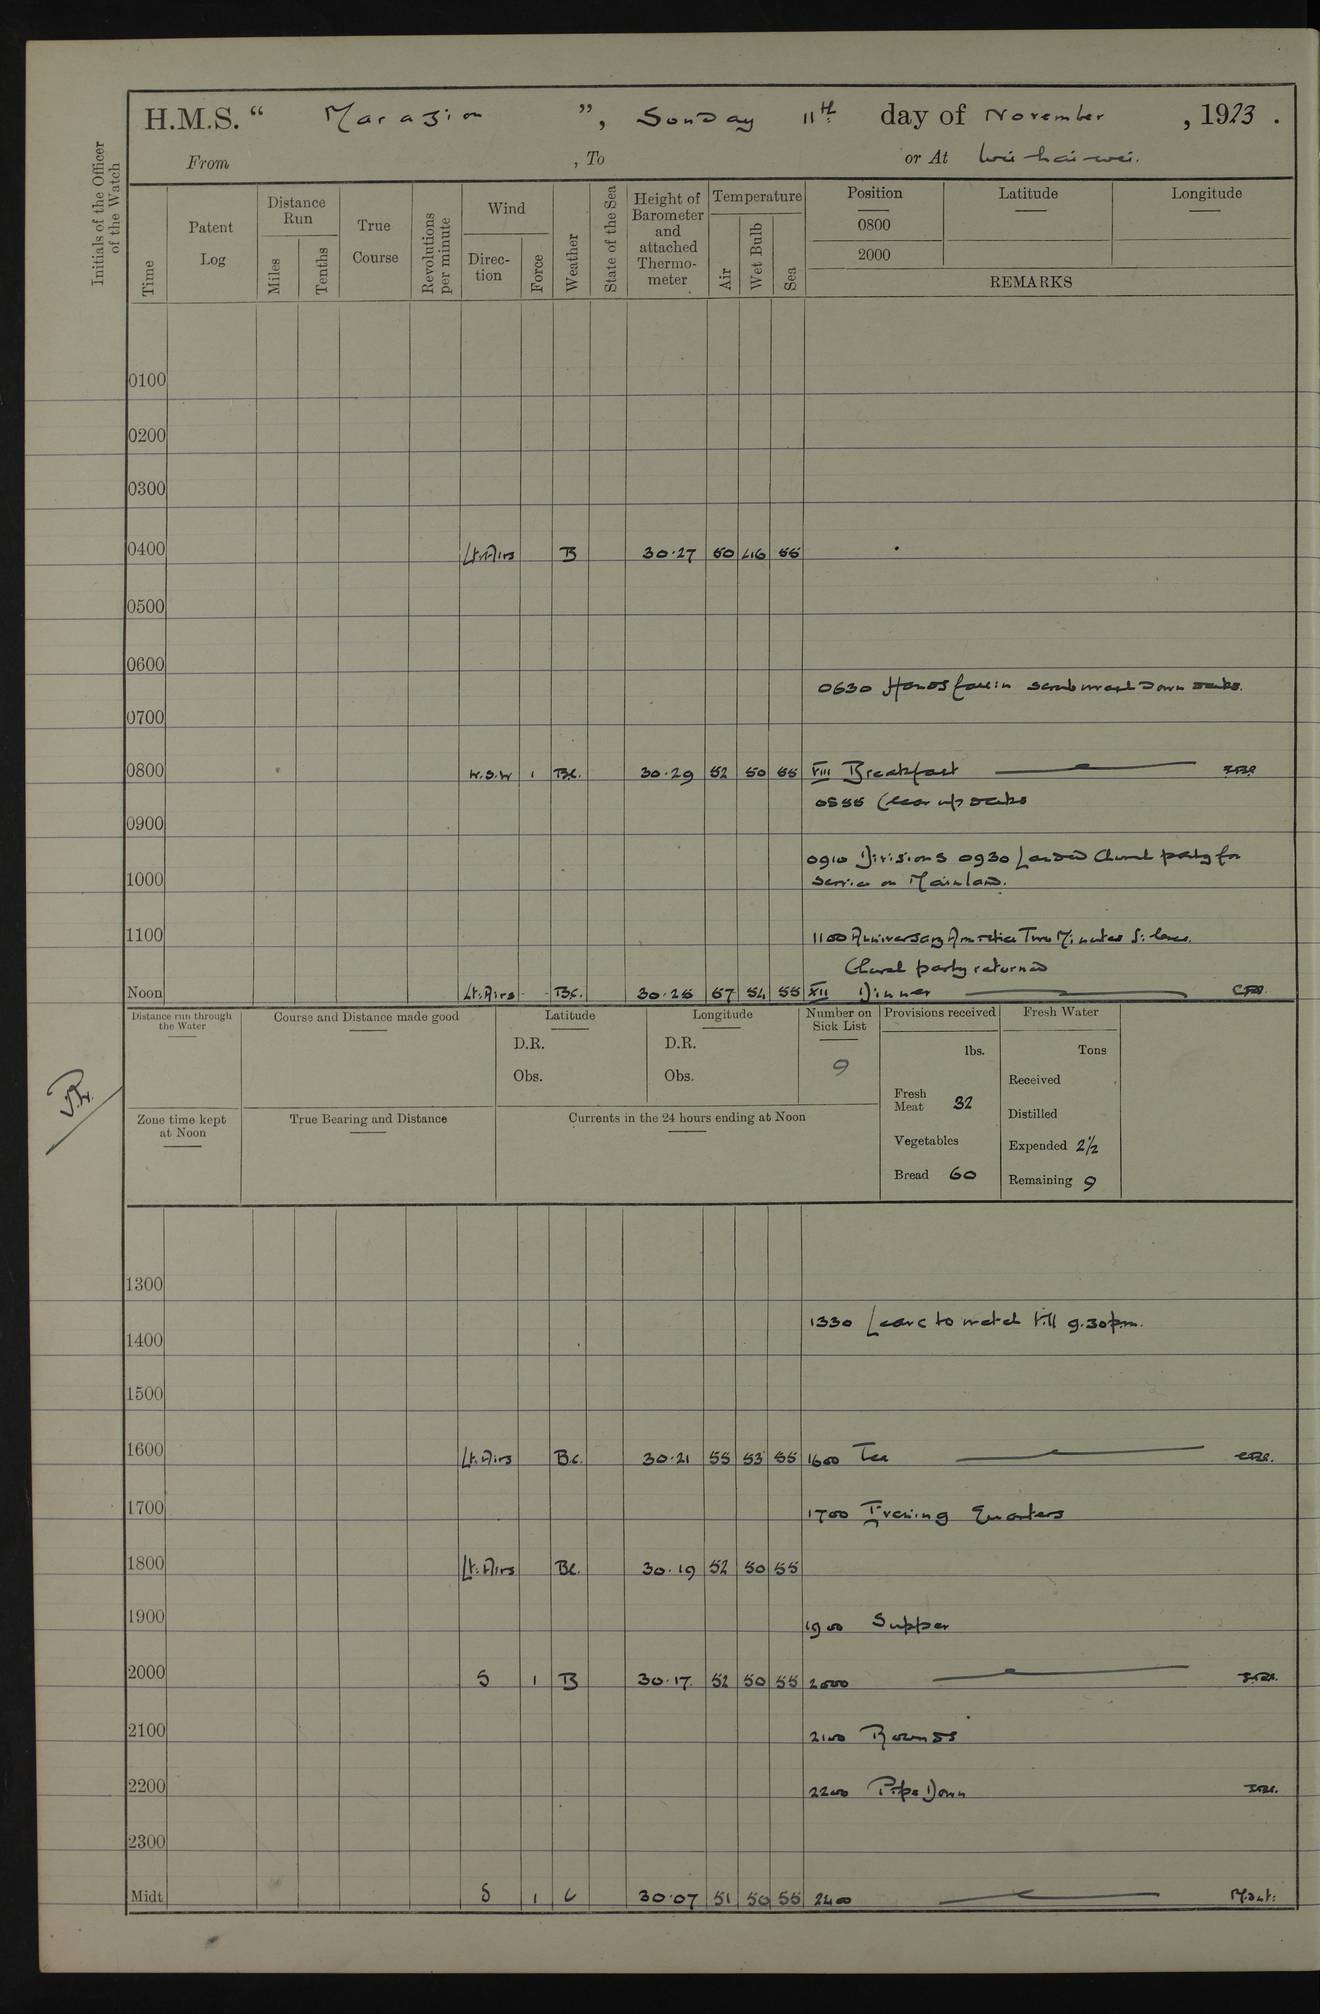 H.M.S. “ Marazion ”, Sunday 11th day of November , 1923 .
From , To or At Wei-hai-wei.
Initials of the Officer of the Watch
Time
Patent Log
Distance Run
Miles
Tenths
True Course
Revolutions per minute
Wind
Direc-tion
Force
Weather
State of the Sea
Height of Barometer and attached Thermo-meter
Temperature
Air
Wet Bulb
Sea
Position
0800
2000
Latitude
Longitude
REMARKS
0100
0200
0300
0400 Lt. Airs B 30.27 50 46 55
0500
0600
0630 Hands fall in scrub wash down decks.
0700
0800 W.S.W 1 B.C. 30.29 52 50 55 VIII Breakfast
0855 Clear up decks
0900
0910 Divisions 0930 Landed Church party for
1000 service on Mainland.
1100 1100 Anniversary Armistice Two Minutes Silence.
Church party returned
Noon Lt. Airs - - B.C. 30.25 57 54 55 XII Dinner
Distance run through the Water
Course and Distance made good
Latitude
D.R.
Obs.
Longitude
D.R.
Obs.
Number on Sick List
9
Provisions received
lbs.
Fresh Meat 32
Vegetables
Bread 60
Fresh Water
Tons
Received
Distilled
Expended 2½
Remaining 9
Zone time kept at Noon
True Bearing and Distance
Currents in the 24 hours ending at Noon
1300
1330 Leave to watch till 9.30 p.m.
1400
1500
1600 Lt. Airs B.C. 30.21 55 53 55 1600 Tea
1700 1700 Evening Quarters
1800 Lt. Airs B.C. 30.19 52 50 55
1900 1900 Supper
2000 S 1 B 30.17 52 50 55 2000
2100 2100 Rounds
2200 2200 Pipe Down
2300
Midt S 1 C 30.07 51 50 55 2400